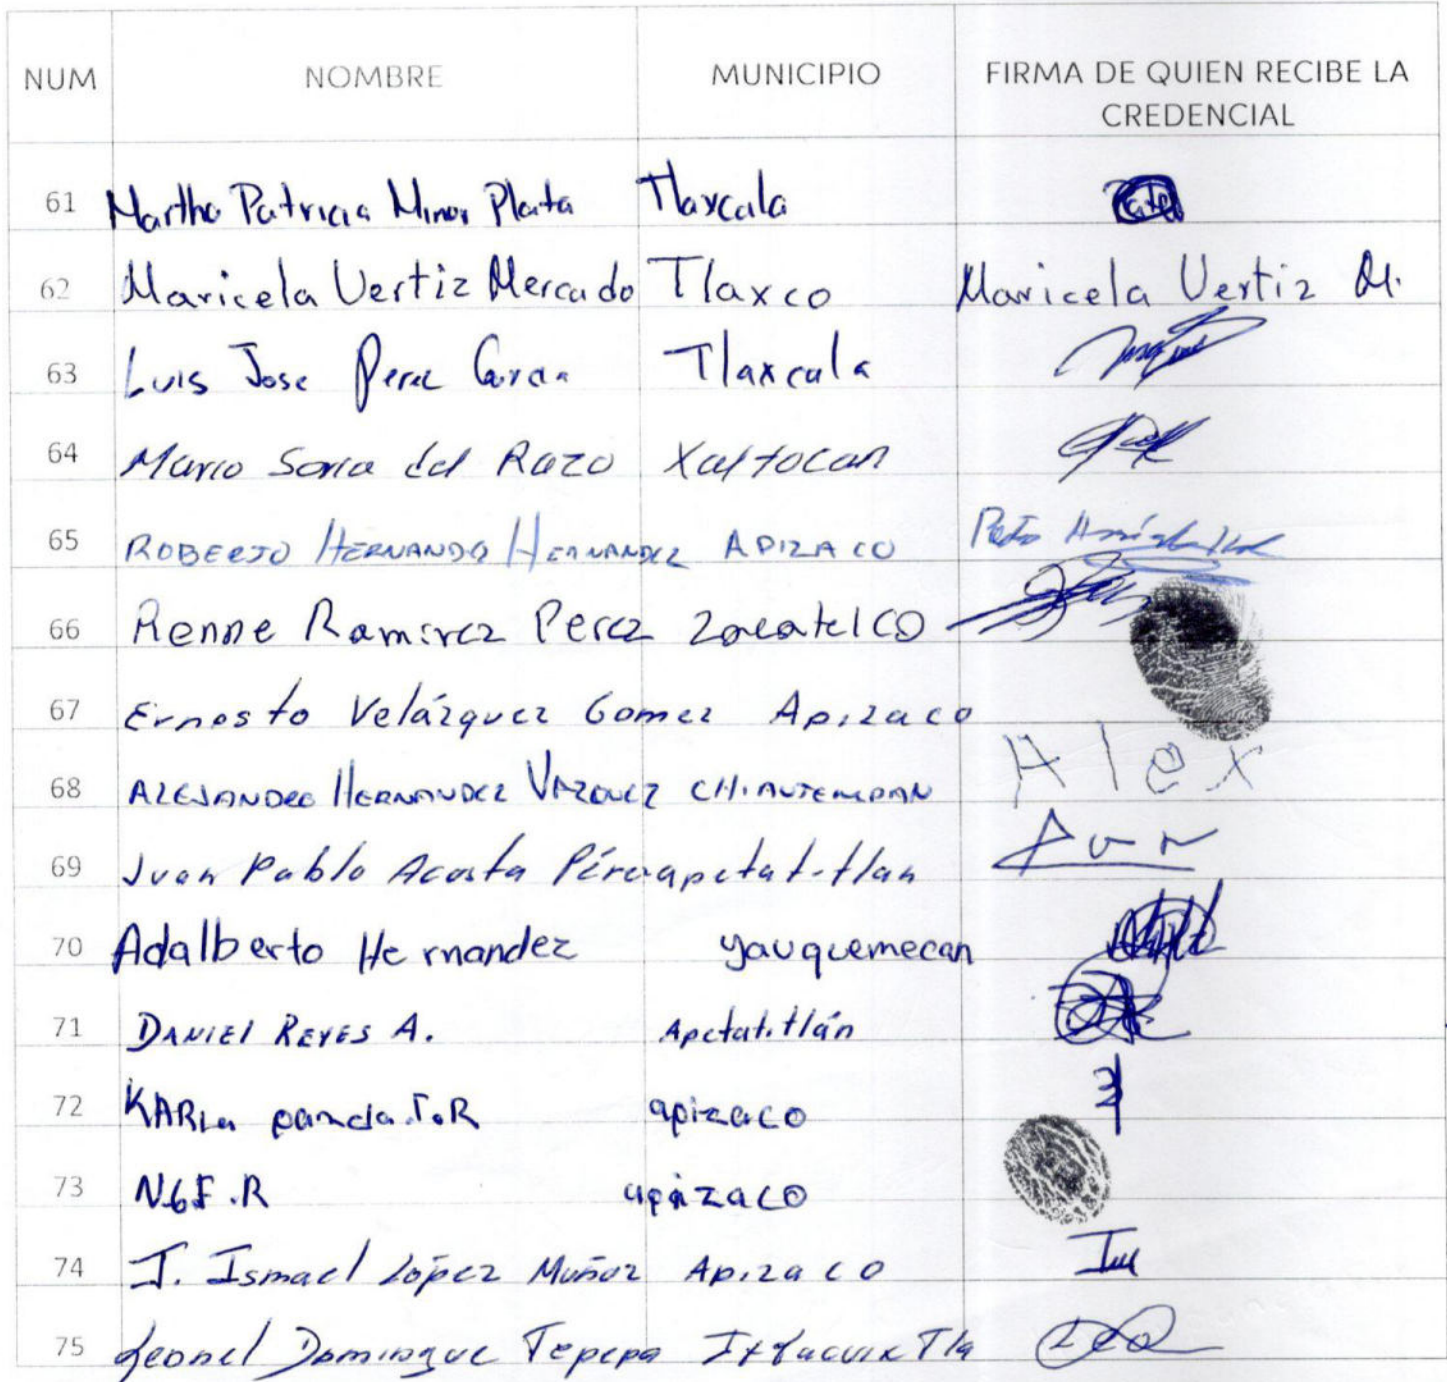 NUM NOMBRE MUNICIPIO FIRMA DE QUIEN RECIBE LA
CREDENCIAL
61 Martha Patricia Minor Plata Tlaxcala
62 Maricela Vertiz Mercado Tlaxco Maricela Vertiz M.
63 Luis Jose Perez Tlaxcala
64 Mario Soria del Razo Xaltocan
65 ROBERTO HERNANDEZ HERNANDEZ APIZACO
66 Renne Ramirez Perez Zacatelco
67 Ernesto Velázquez Gomez Apizaco
68 ALEJANDRO HERNANDEZ VAZQUEZ CHIAUTEMPAN Alex
69 Juan Pablo Acosta Pérez apetatitlan
70 Adalberto Hernandez yauquemecan
71 DANIEL REYES A. Apetatitlán
72 KARLa T.R apizaco
73 apizaco
74 J. Ismael López Muñoz Apizaco
75 Leonel Domingue Tepepa IxtacuixTla